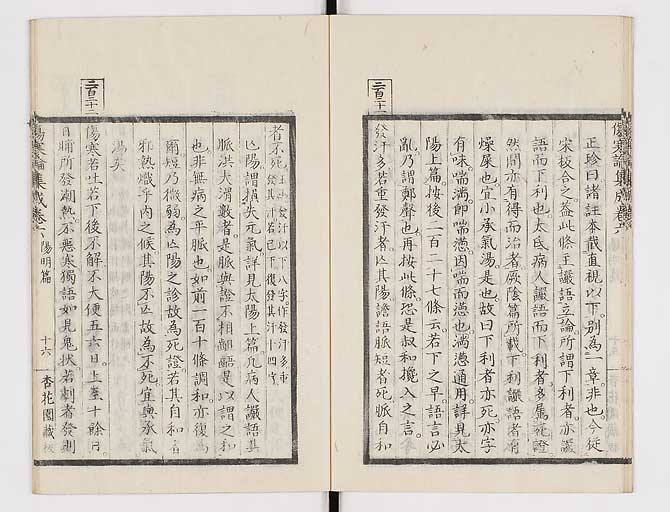 傷寒論集成卷六
正珍曰諸註本截直視以下別為一章非也今從
宋板合之蓋此條主讝語立論所謂下利者亦讝
語而下利也大氐病人讝語而下利者多屬死證
然間亦有得而治者厥陰篇所載下利讝語者有
燥屎也宜小承氣湯是也故曰下利者亦死亦字
有味喘滿即喘懣因喘而懣也滿懣通用詳見太
陽上篇按後二百二十七條云若下之早語言必
亂乃謂鄭聲也再按此條恐是叔和攙入之言
二百二十一
發汗多若重發汗者亾其陽讝語脈短者死脈自和
者不死
亾陽謂損失元氣詳見太陽上篇凡病人讝語其
脈洪大滑數者是脈與證不相齟齬是以謂之和
也非無病之平脈也如前一百十條調和亦復為
爾短乃微弱為亾陽之診故為死證若其自和者
邪熱熾乎內之候其陽不亾故為不死宜與承氣
湯矣
二百二十二
傷寒若吐若下後不解不大便五六日上至十餘日
日晡所發潮熱不惡寒獨語如見鬼狀若劇者發則
傷寒論集成卷六 陽明篇 十六 杏花園藏板